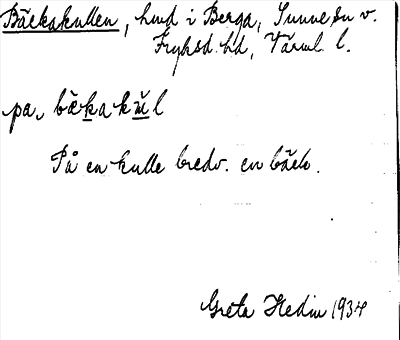 Bäckakullen, hmd i Berga, Sunne sn v.
Fryksd. hd, Värml. l.
pa, bäkakŭl
På en kulle bredv. en bäck.
Greta Hedin 1934